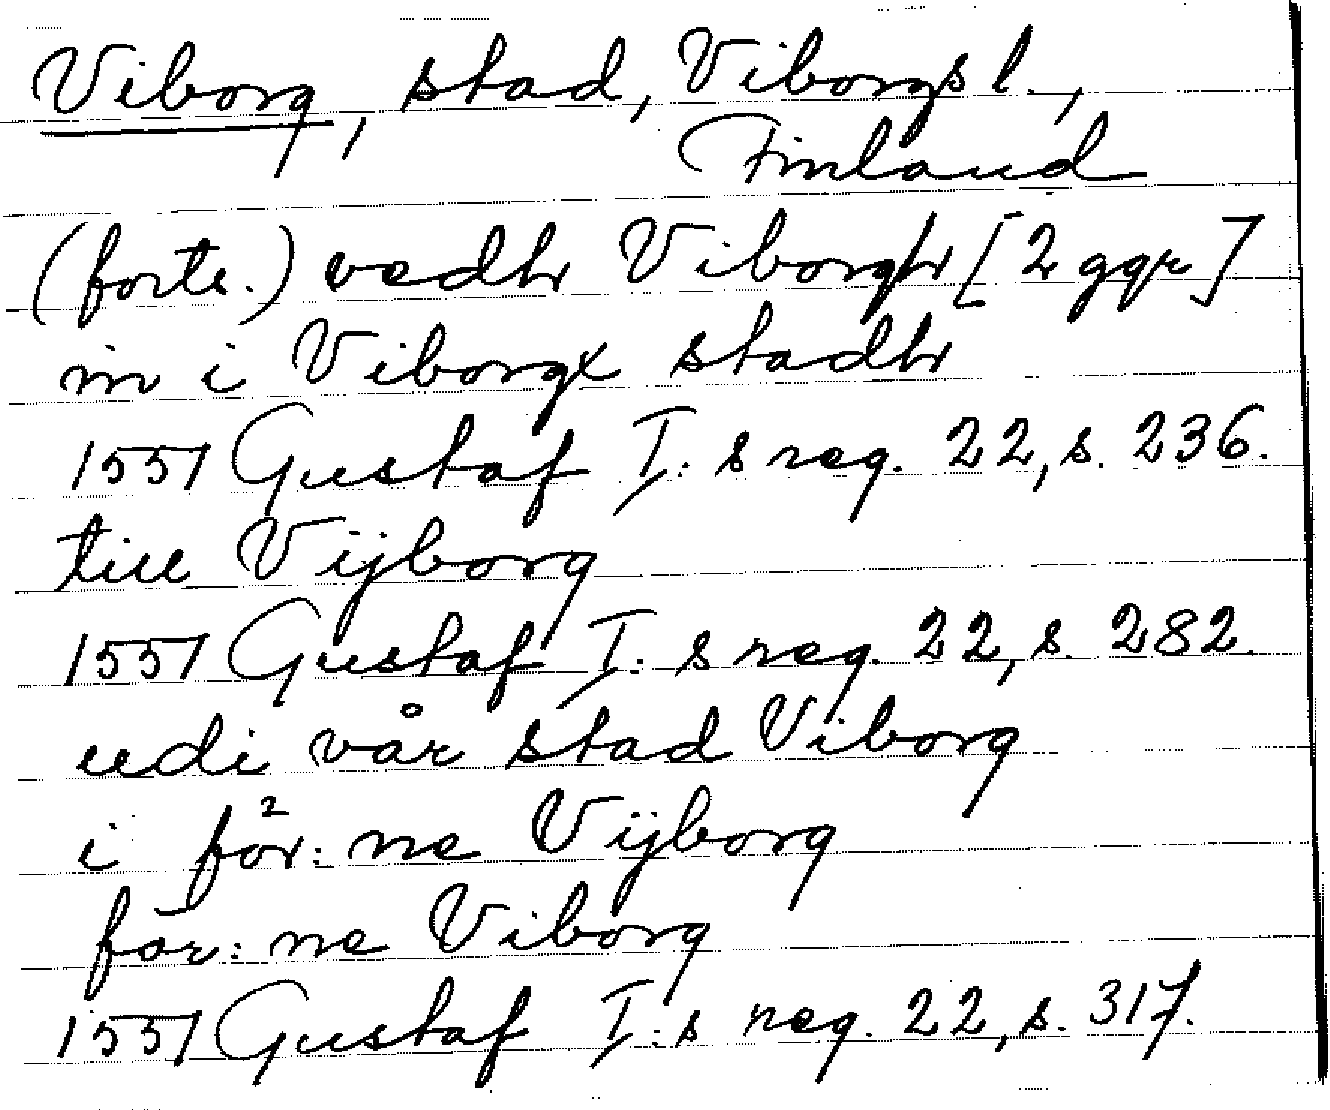 Viborg, stad, Viborgs l.,
Finland
(forts.) vedh Viborgh [2 ggr]
in i Viborgx stadh
1551 Gustaf I:s reg. 22, s. 236.
till Vijborg
1551 Gustaf I:s reg. 22, s. 282.
udi vår stad Viborg
i för:ne Vijborg
för:ne Viborg
1551 Gustaf I:s reg. 22, s. 317.